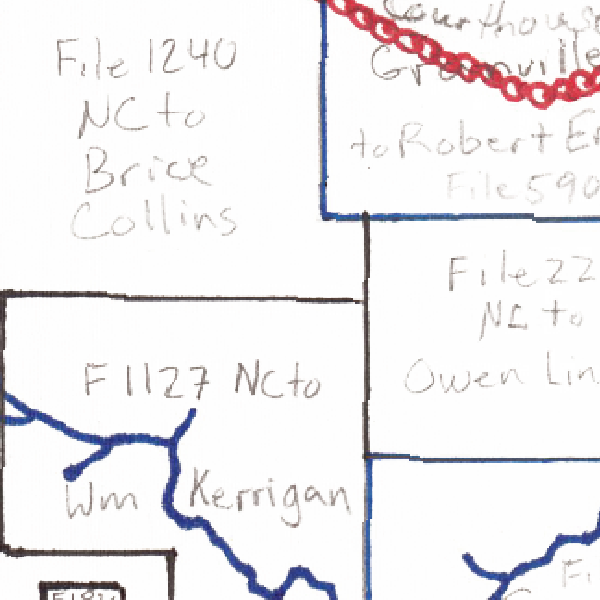 File 1240
NC to
Brice
Collins
Courthouse
Greenville
to Robert
File 590
File 22
NC to
Owen Lin
F 1127 NC to
Wm Kerrigan